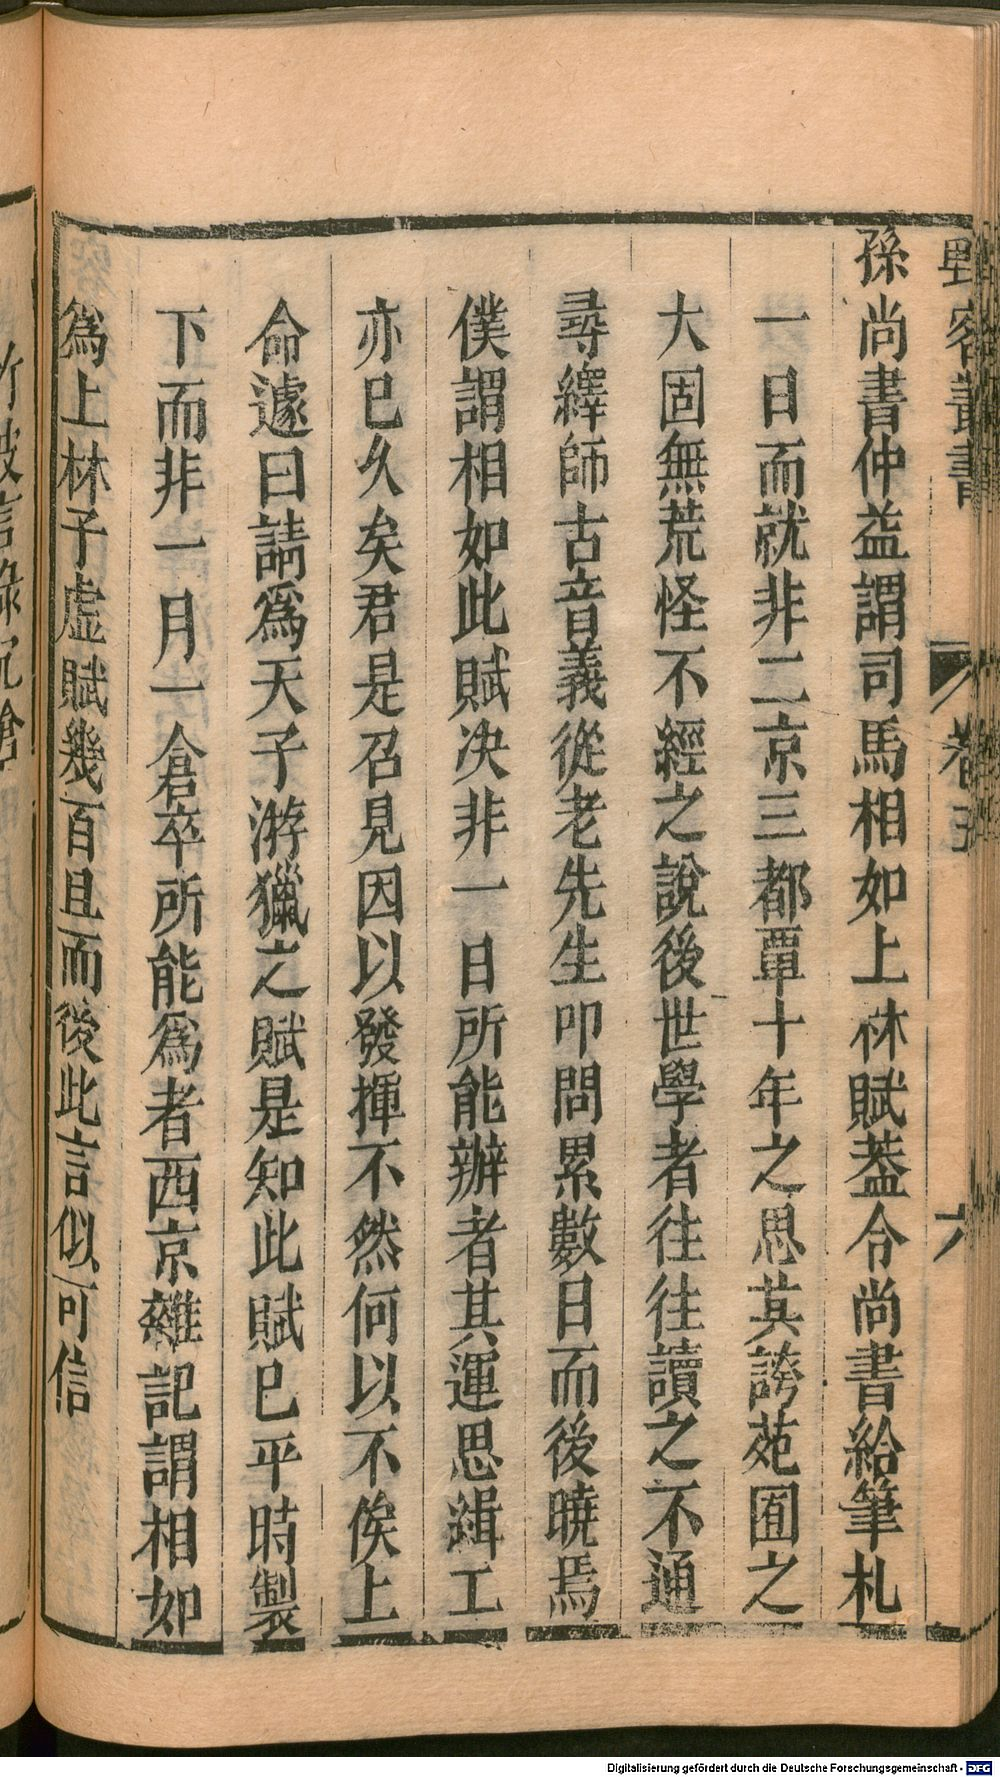 野客叢書
卷五
六
孫尚書仲益謂司馬相如上林賦葢令尚書給筆札
一日而就非二京三都覃十年之思其誇苑囿之
大固無荒怪不經之說後世學者往往讀之不通
尋繹師古音義從老先生叩問累數日而後曉焉
僕謂相如此賦决非一日所能辦者其運思緝工
亦已久矣君是召見因以發揮不然何以不俟上
命遽曰請爲天子游獵之賦是知此賦已平時製
下而非一月一倉卒所能爲者西京雜記謂相如
爲上林子虛賦幾百且而後此言似可信
Digitalisierung gefördert durch die Deutsche Forschungsgemeinschaft - DFG